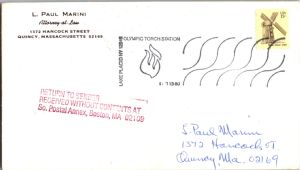 L. PAUL MARINI
Attorney at Law
1372 HANCOCK STREET
QUINCY, MASSACHUSETTS 02169
OLYMPIC TORCH STATION
LAKE PLACID NY 12946
USA
15c
RETURN TO SENDER
RECEIVED WITHOUT CONTENTS AT
So. Postal Annex, Boston, MA 02109
L Paul Marini
1372 Hancock St
Quincy, Ma. 02169